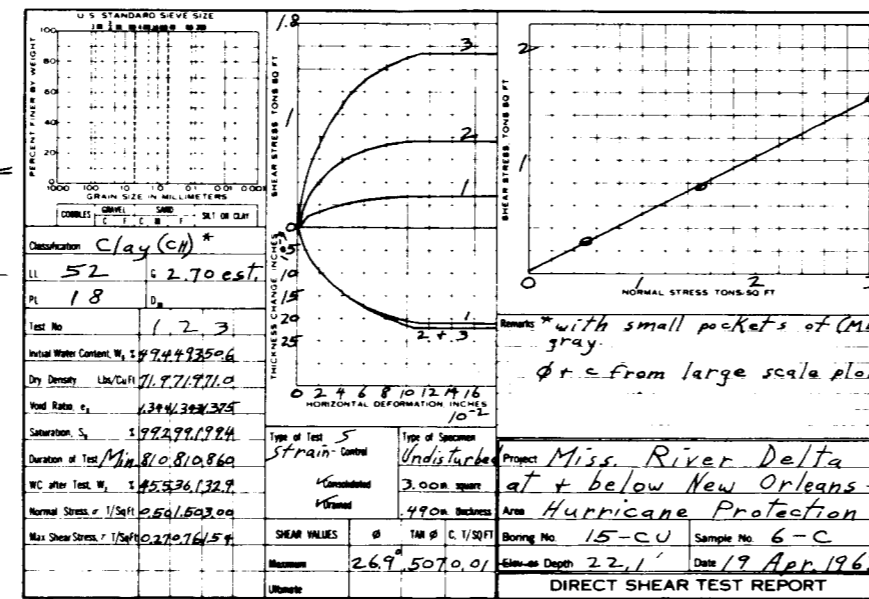 U S STANDARD SIEVE SIZE
PERCENT FINER BY WEIGHT
100
80
60
40
20
1000 100 10 1 0.1 0.01 0.001
GRAIN SIZE IN MILLIMETERS
COBBLES GRAVEL SAND SILT OR CLAY
C F C M F
Classification Clay (CH) *
LL 52 G 2.70 est.
PL 18 D
Test No 1 2 3
Initial Water Content, W, % 49.4 49.3 50.6
Dry Density Lbs/CuFt 71.9 71.9 71.0
Void Ratio, e, 1.344 1.343 1.375
Saturation, S, % 99.2 99.1 99.4
Duration of Test Min 810 810 860
WC after Test, W, % 45.5 36.1 32.9
Normal Stress, σ T/SqFt 0.50 1.50 3.00
Max Shear Stress, τ T/SqFt 0.27 0.76 1.54
SHEAR STRESS TONS SQ FT
1.8
1
0
3
2
1
THICKNESS CHANGE INCHES
5
10
15
20
25
1
2 + 3
0 2 4 6 8 10 12 14 16
HORIZONTAL DEFORMATION, INCHES
10-2
Type of Test S
Strain- Control
Consolidated
Drained
Type of Specimen
Undisturbed
3.00 in square
.490 in thickness
SHEAR VALUES Ø TAN Ø C, T/SQ FT
Maximum 26.9° .507 0.01
Ultimate
SHEAR STRESS, TONS SQ FT
2
1
0 1 2
NORMAL STRESS TONS SQ FT
Remarks * with small pockets of (ML
gray.
Ø + c from large scale plo
Project Miss. River Delta
at + below New Orleans -
Area Hurricane Protection
Boring No. 15-CU Sample No. 6-C
Depth 22.1' Date 19 Apr. 196
DIRECT SHEAR TEST REPORT